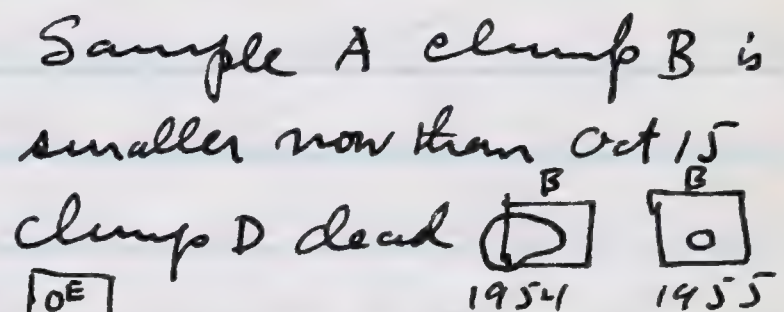 Sample A clump B is
smaller now than Oct 15
B B
Clump D dead
OE 1954 1955